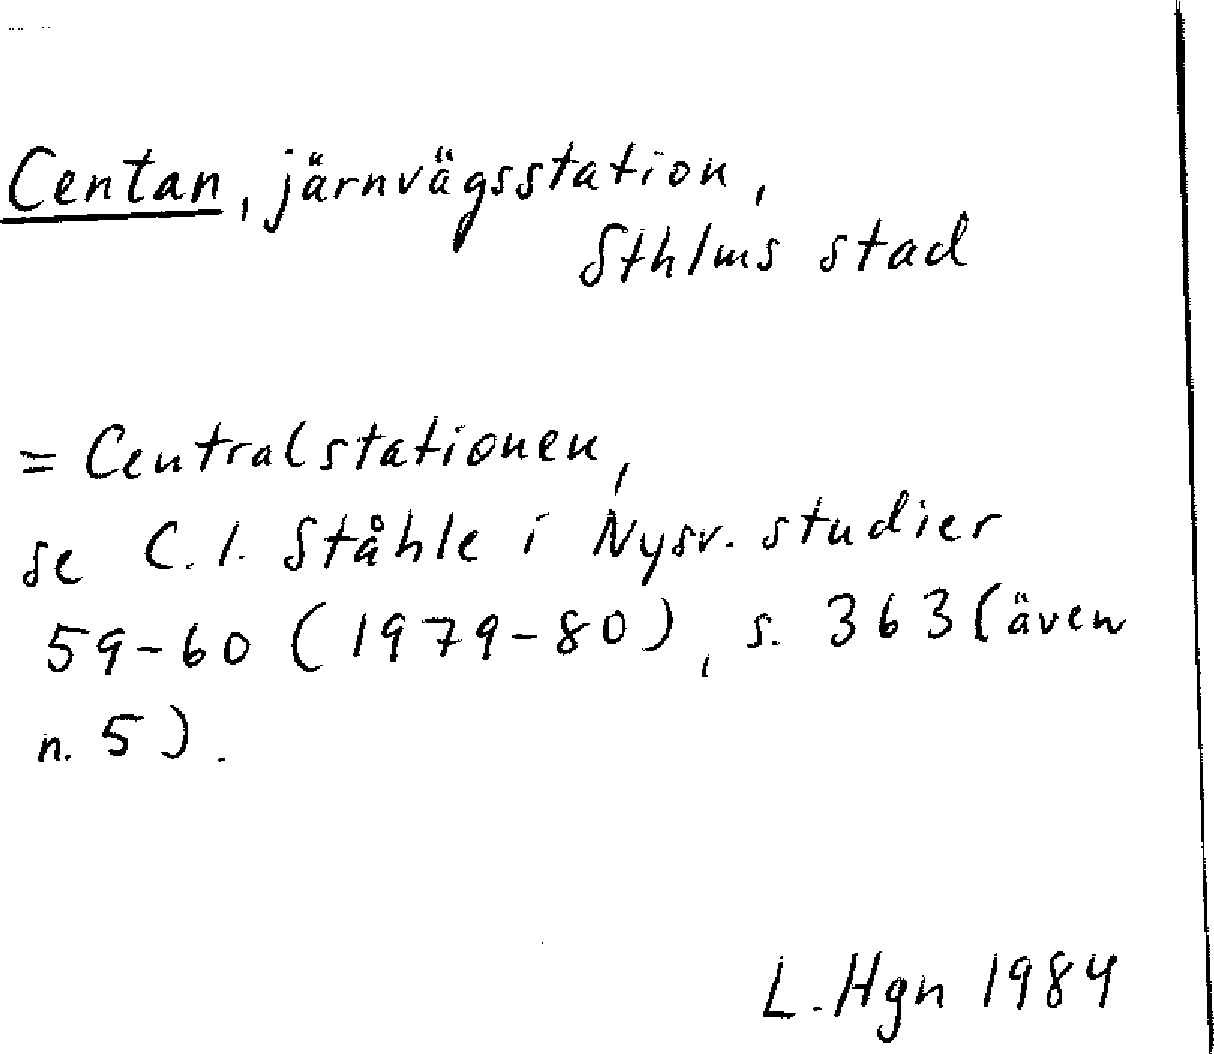 Centan, järnvägsstation,
Sthlms stad
= Centralstationen,
se C. I. Ståhle i Nysv. studier
59-60 (1979-80), s. 363 (även
n. 5).
L. Hgn 1984